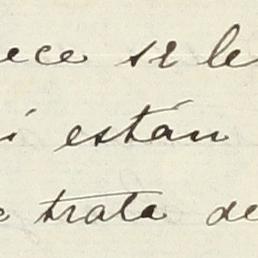 ece si le
i están
e trata de